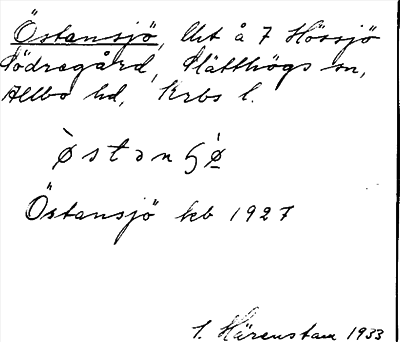 Östansjö, lht å 7 Hössjö
Södregård, Slätthögs sn,
Allbo hd, Krbs l.
Östansjö kb 1927
S. Härenstam 1933